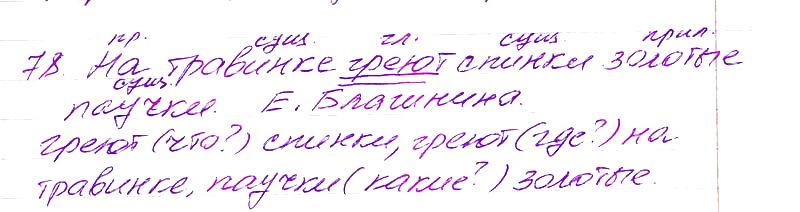 пр. сущ. гл. сущ. прил.
78. На травинке греют спинки золотые
сущ.
паучки. Е. Благинина.
греют (что?) спинки, греют (где?) на
травинке, паучки (какие?) золотые.